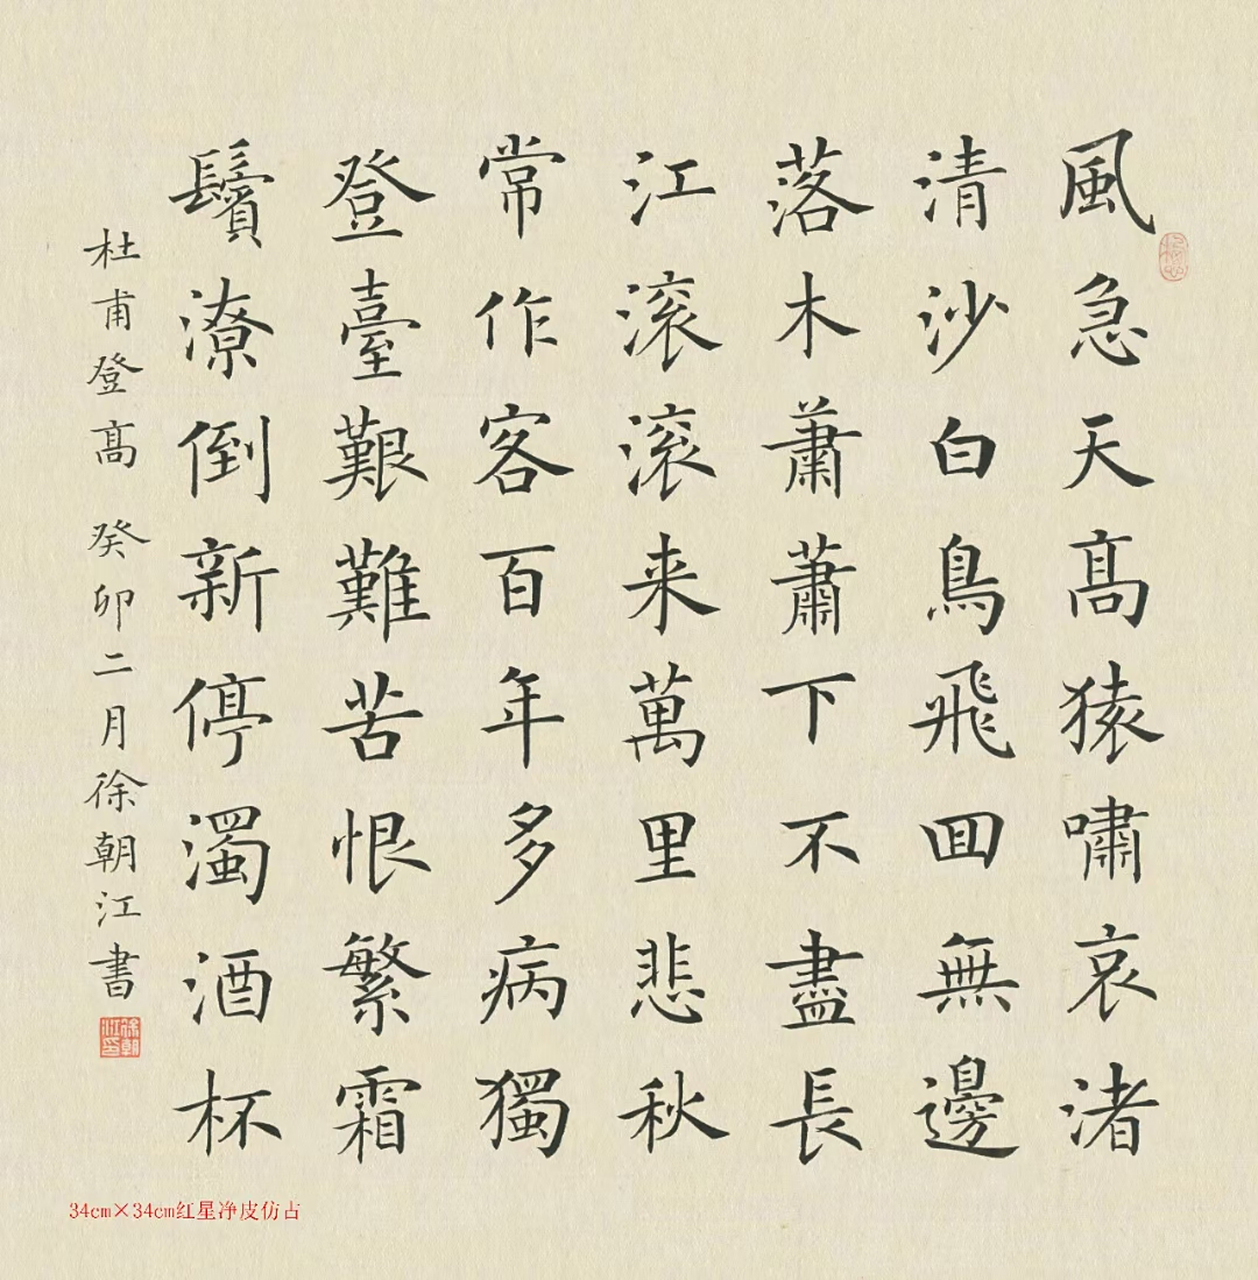 風急天高猿嘯哀渚
清沙白鳥飛回無邊
落木蕭蕭下不盡長
江滚滚来萬里悲秋
常作客百年多病獨
登臺艱難苦恨繁霜
鬢潦倒新停濁酒杯
杜甫登高 癸卯二月徐朝江書
徐朝江印
34cm×34cm红星净皮仿古